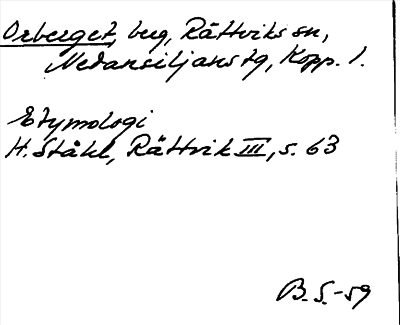 Orberget, berg, Rättviks sn,
Nedansiljans tg, Kopp. l.
Etymologi
H. Ståhl, Rättvik III, s. 63
B. S. -59